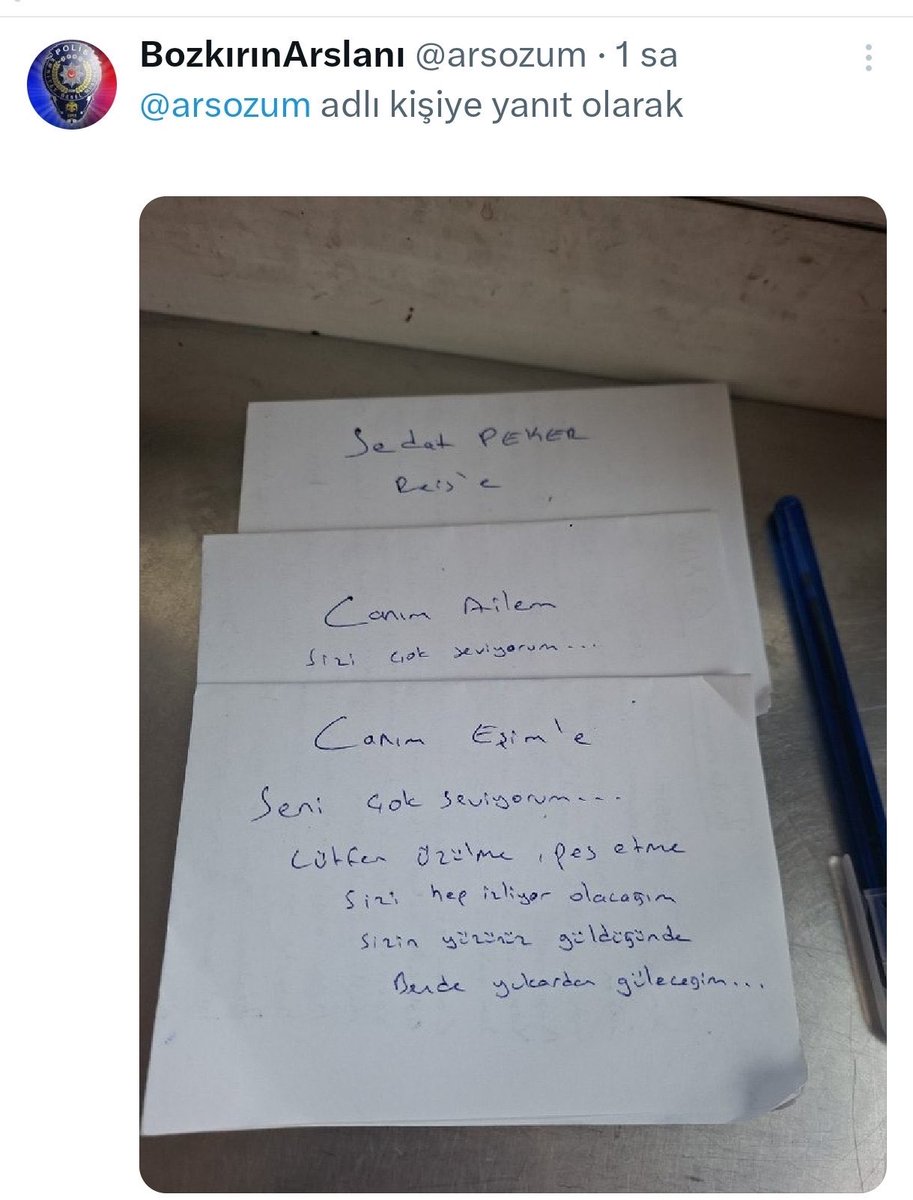 BozkırınArslanı @arsozum · 1 sa
@arsozum adlı kişiye yanıt olarak
POLİS
Sedat PEKER
Reis'e
Canım Ailem
Sizi çok seviyorum...
Canım Eşim'e
Seni çok seviyorum...
Lütfen üzülme, pes etme
Sizi hep izliyor olacağım
Sizin yüzünüz güldüğünde
Bende yukardan güleceğim...